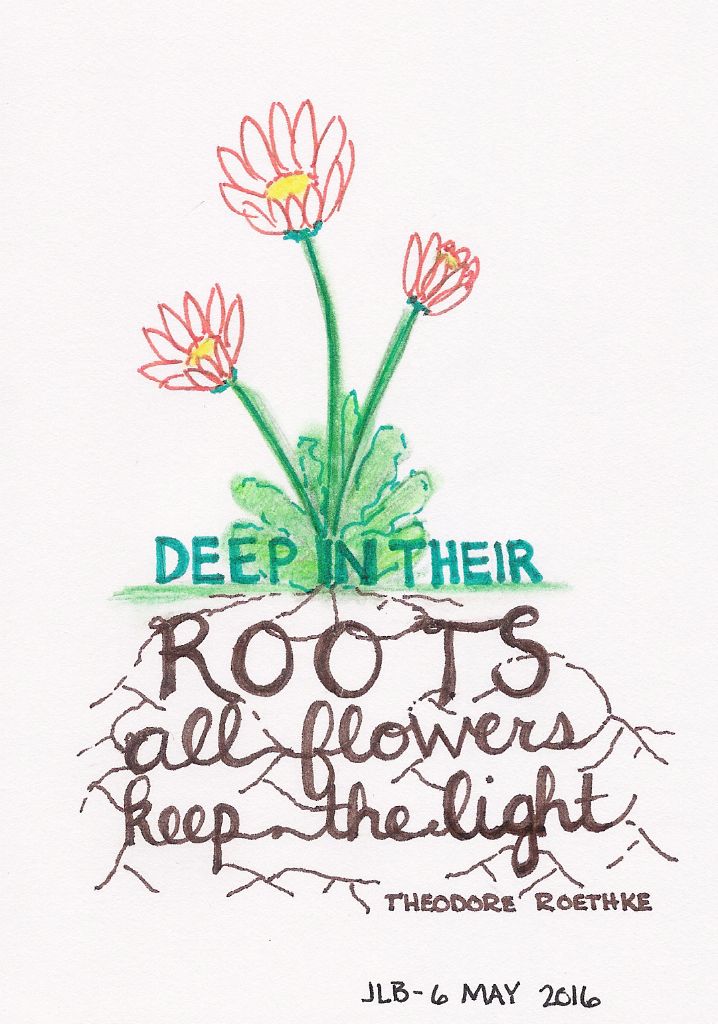 DEEP IN THEIR
ROOTS
all flowers
keep the light
THEODORE ROETHKE
JLB-6 MAY 2016